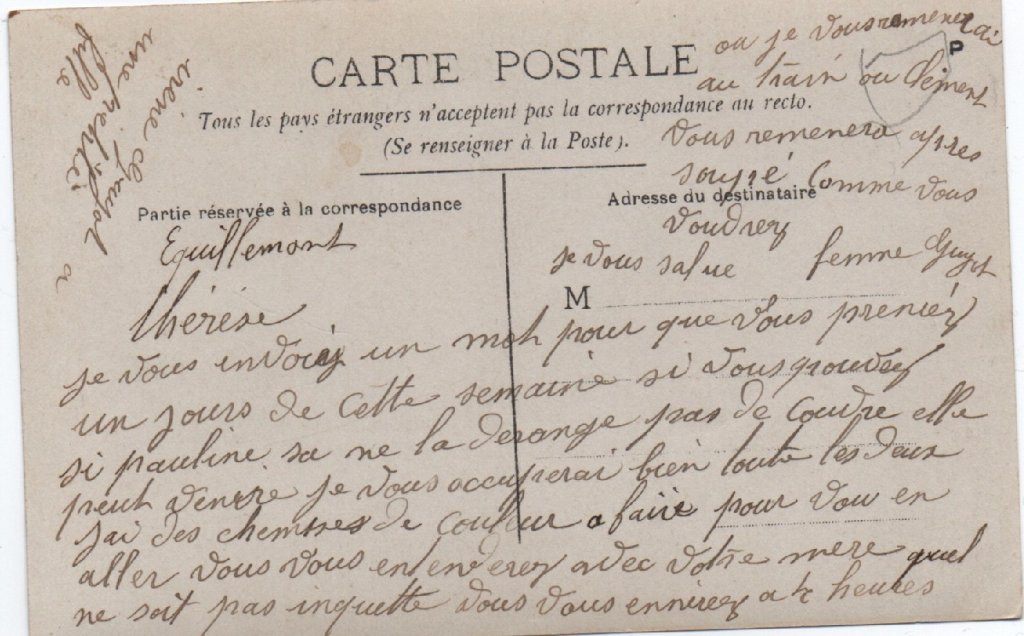 CARTE POSTALE
Tous les pays étrangers n'acceptent pas la correspondance au recto.
(Se renseigner à la Poste).
Partie réservée à la correspondance
Adresse du destinataire
M
P
Equillemont
thérése
je vous envoiy un mot pour que vous preniéz
un jours de cette semaine si vous pouvez
si pauline sa ne la derange pas de coudre elle
peut venire je vous occuperai bien toute les deux
jai des chemises de couleur a faire pour vou en
aller vous vous en enverez avec votre mere quel
ne soit pas inquette vous vous ennirez a 4 heures
ou je vous remenerai
au train ou Clément
vous remenera apres
soupé comme vous
voudrez
je vous salue femme Guyot
irène a
une petite
fille